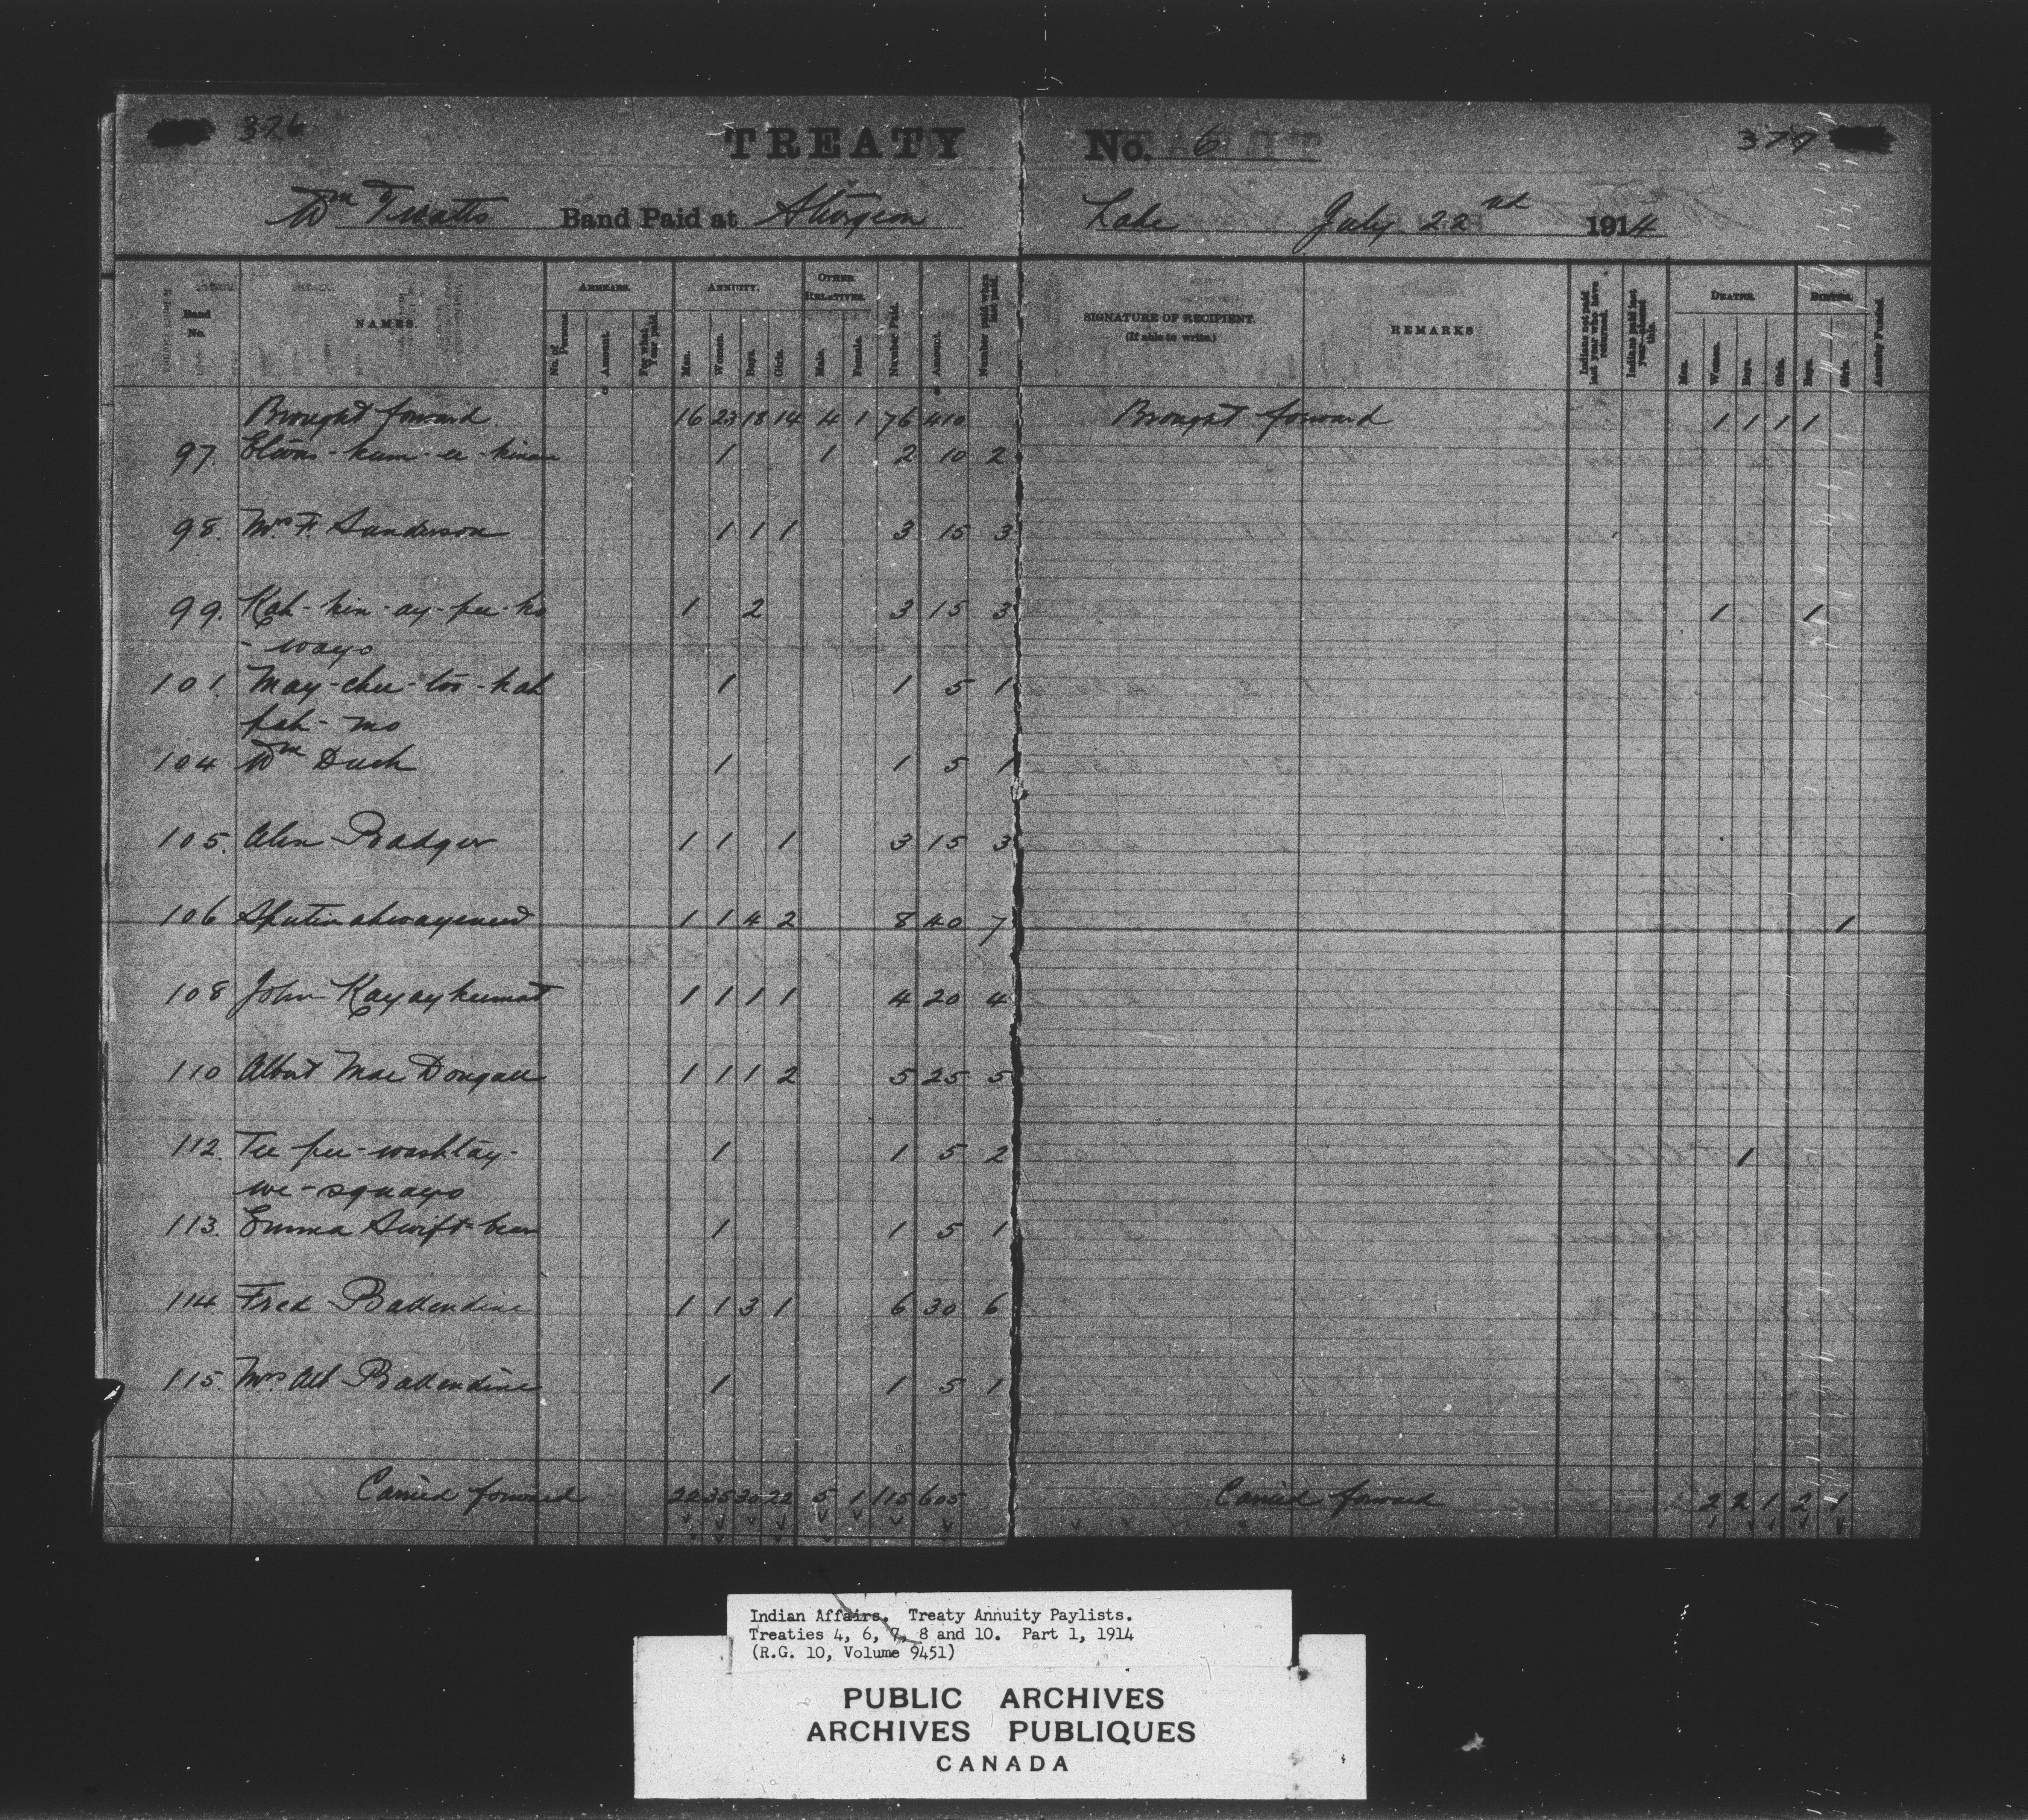 376
TREATY No. 6
377
Wm Twatts Band Paid at Sturgeon Lake July 22nd 1914
Band No.
NAMES.
ARREARS.
No. of Persons.
Amount.
For what Year paid.
ANNUITY.
Men.
Women.
Boys.
Girls.
OTHER RELATIVES.
Male.
Female.
Number Paid.
Amount.
Number paid when last paid.
SIGNATURE OF RECIPIENT.
(If able to write.)
REMARKS
Indians not paid last year who have returned.
Indians paid last year—absent this.
DEATHS.
Men.
Women.
Boys.
Girls.
BIRTHS.
Boys.
Girls.
Annuity Funded.
Brought forward 16 23 18 14 4 1 76 410 Brought forward 1 1 1 1
97. 1 1 2 10 2
98. Mrs F. Sanderson 1 1 1 3 15 3
99. Kah-kin-ay-pee-ko 1 2 3 15 3 1 1
-ways
101. May-chee-too-kah 1 1 5 1
pah-mo
104 Wm Duck 1 1 5 1
105. Alex Badger 1 1 1 3 15 3
106 1 1 4 2 8 40 7 1
108 John Kayaykeemat 1 1 1 1 4 20 4
110 Albert MacDougall 1 1 1 2 5 25 5
112. Tee-pee-washtay- 1 1 5 2 1
we-squayo
113. Emma Swift-bear 1 1 5 1
114 Fred Ballendine 1 1 3 1 6 30 6
115. Mrs Alb Ballendine 1 1 5 1
Carried forward 22 35 30 22 5 1 115 605 Carried forward 2 2 1 2 1
Indian Affairs. Treaty Annuity Paylists.
Treaties 4, 6, 7, 8 and 10. Part 1, 1914
(R.G. 10, Volume 9451)
PUBLIC ARCHIVES
ARCHIVES PUBLIQUES
CANADA